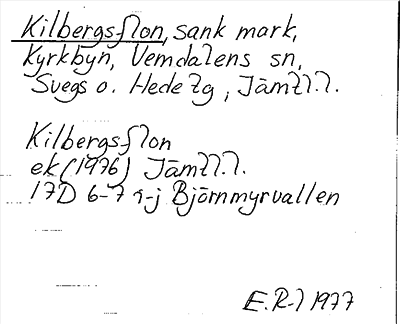 Kilbergsflon, sank mark,
Kyrkbyn, Vemdalens sn,
Svegs o. Hede tg, Jämtl.l.
Kilbergsflon
ek (1976) Jämtl.l.
17D 6-7 i-j Björnmyrvallen
E.R-l 1977